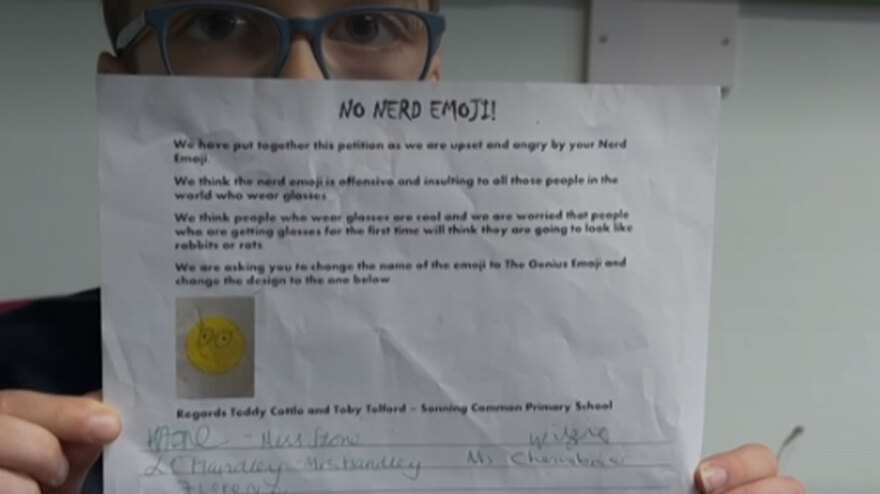 NO NERD EMOJI!
We have put together this petition as we are upset and angry by your Nerd
Emoji.
We think the nerd emoji is offensive and insulting to all those people in the
world who wear glasses
We think people who wear glasses are cool and we are worried that people
who are getting glasses for the first time will think they are going to look like
rabbits or rats.
We are asking you to change the name of the emoji to The Genius Emoji and
change the design to the one below.
Regards Teddy Cottle and Toby Telford – Sonning Common Primary School
Miss Stone
Handley - Mrs Handley